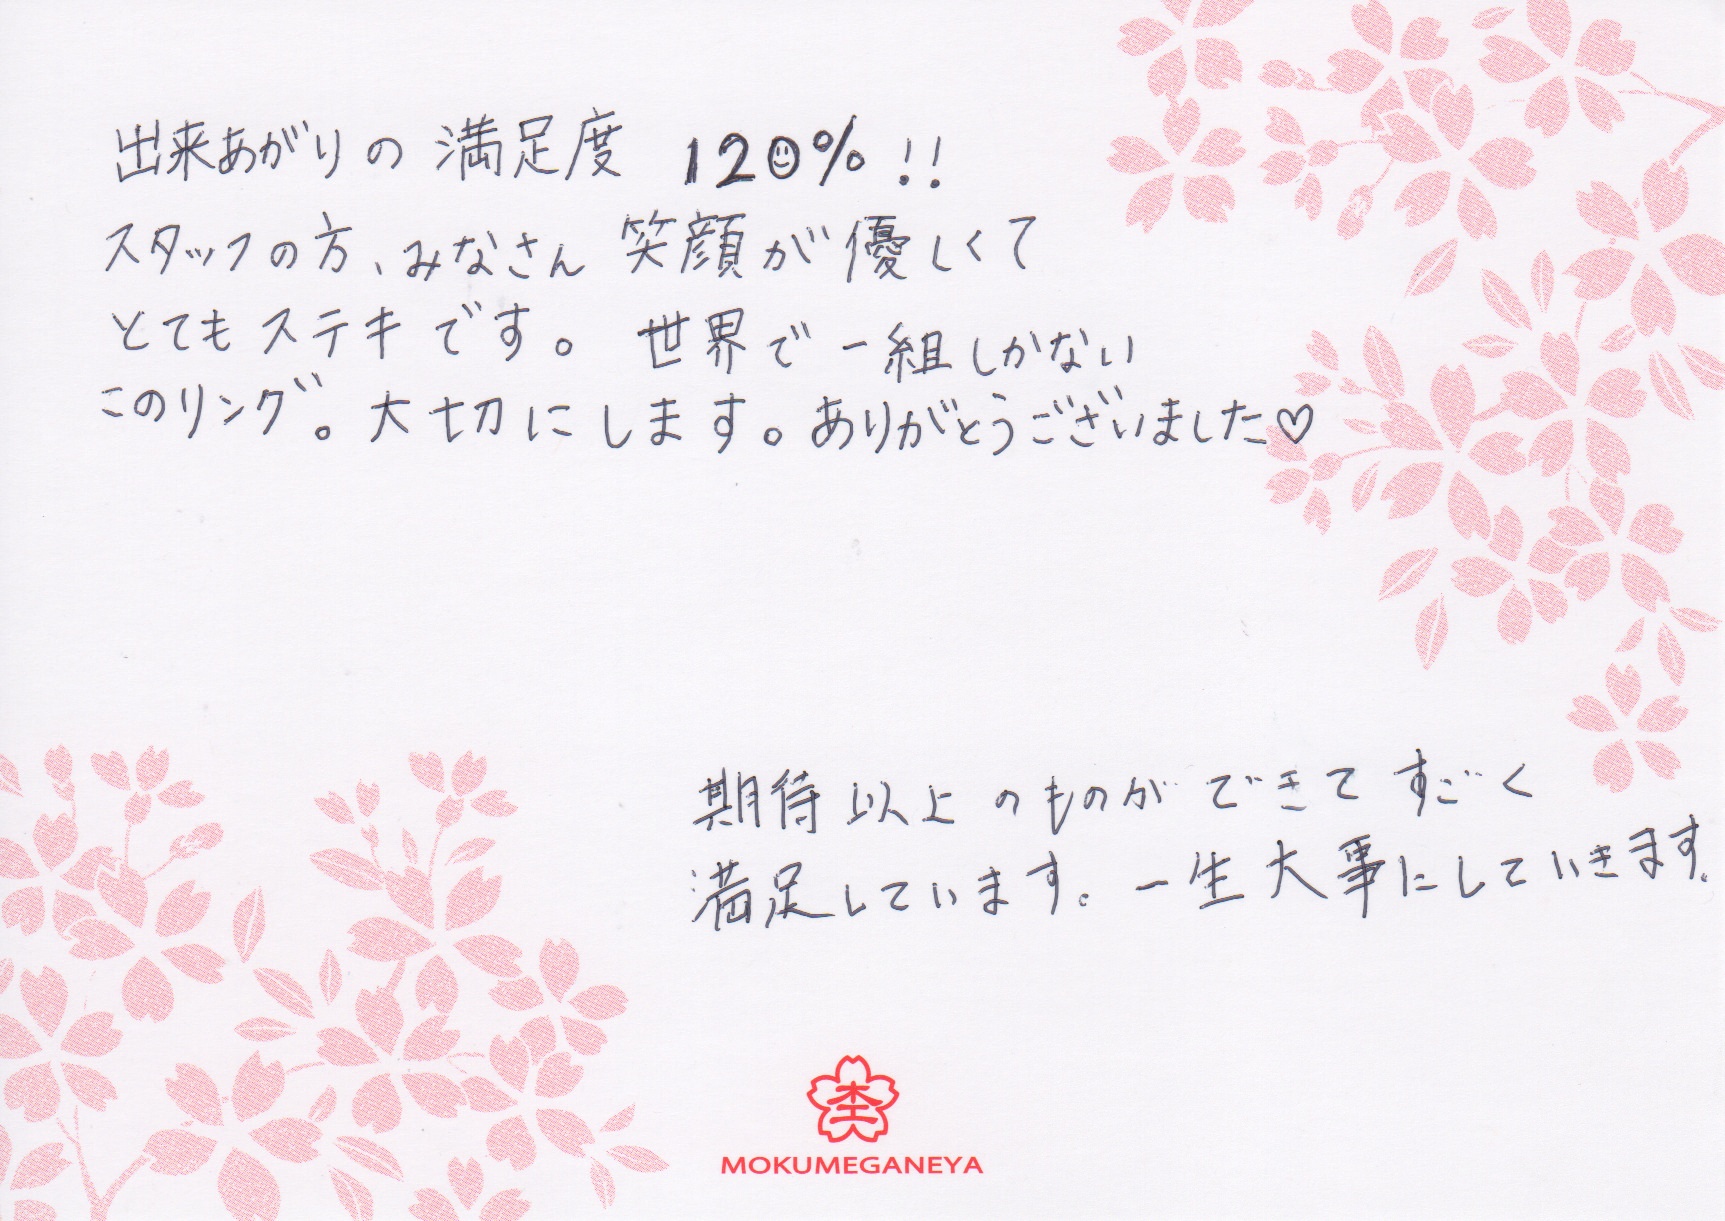 出来あがりの 満足度 120%!!
スタッフの方、みなさん 笑顔が優しくて
とてもステキです。 世界で一組しかない
このリング。大切にします。ありがとうございました♡
期待以上のものが できて すごく
満足しています。一生大事にしていきます。
MOKUMEGANEYA